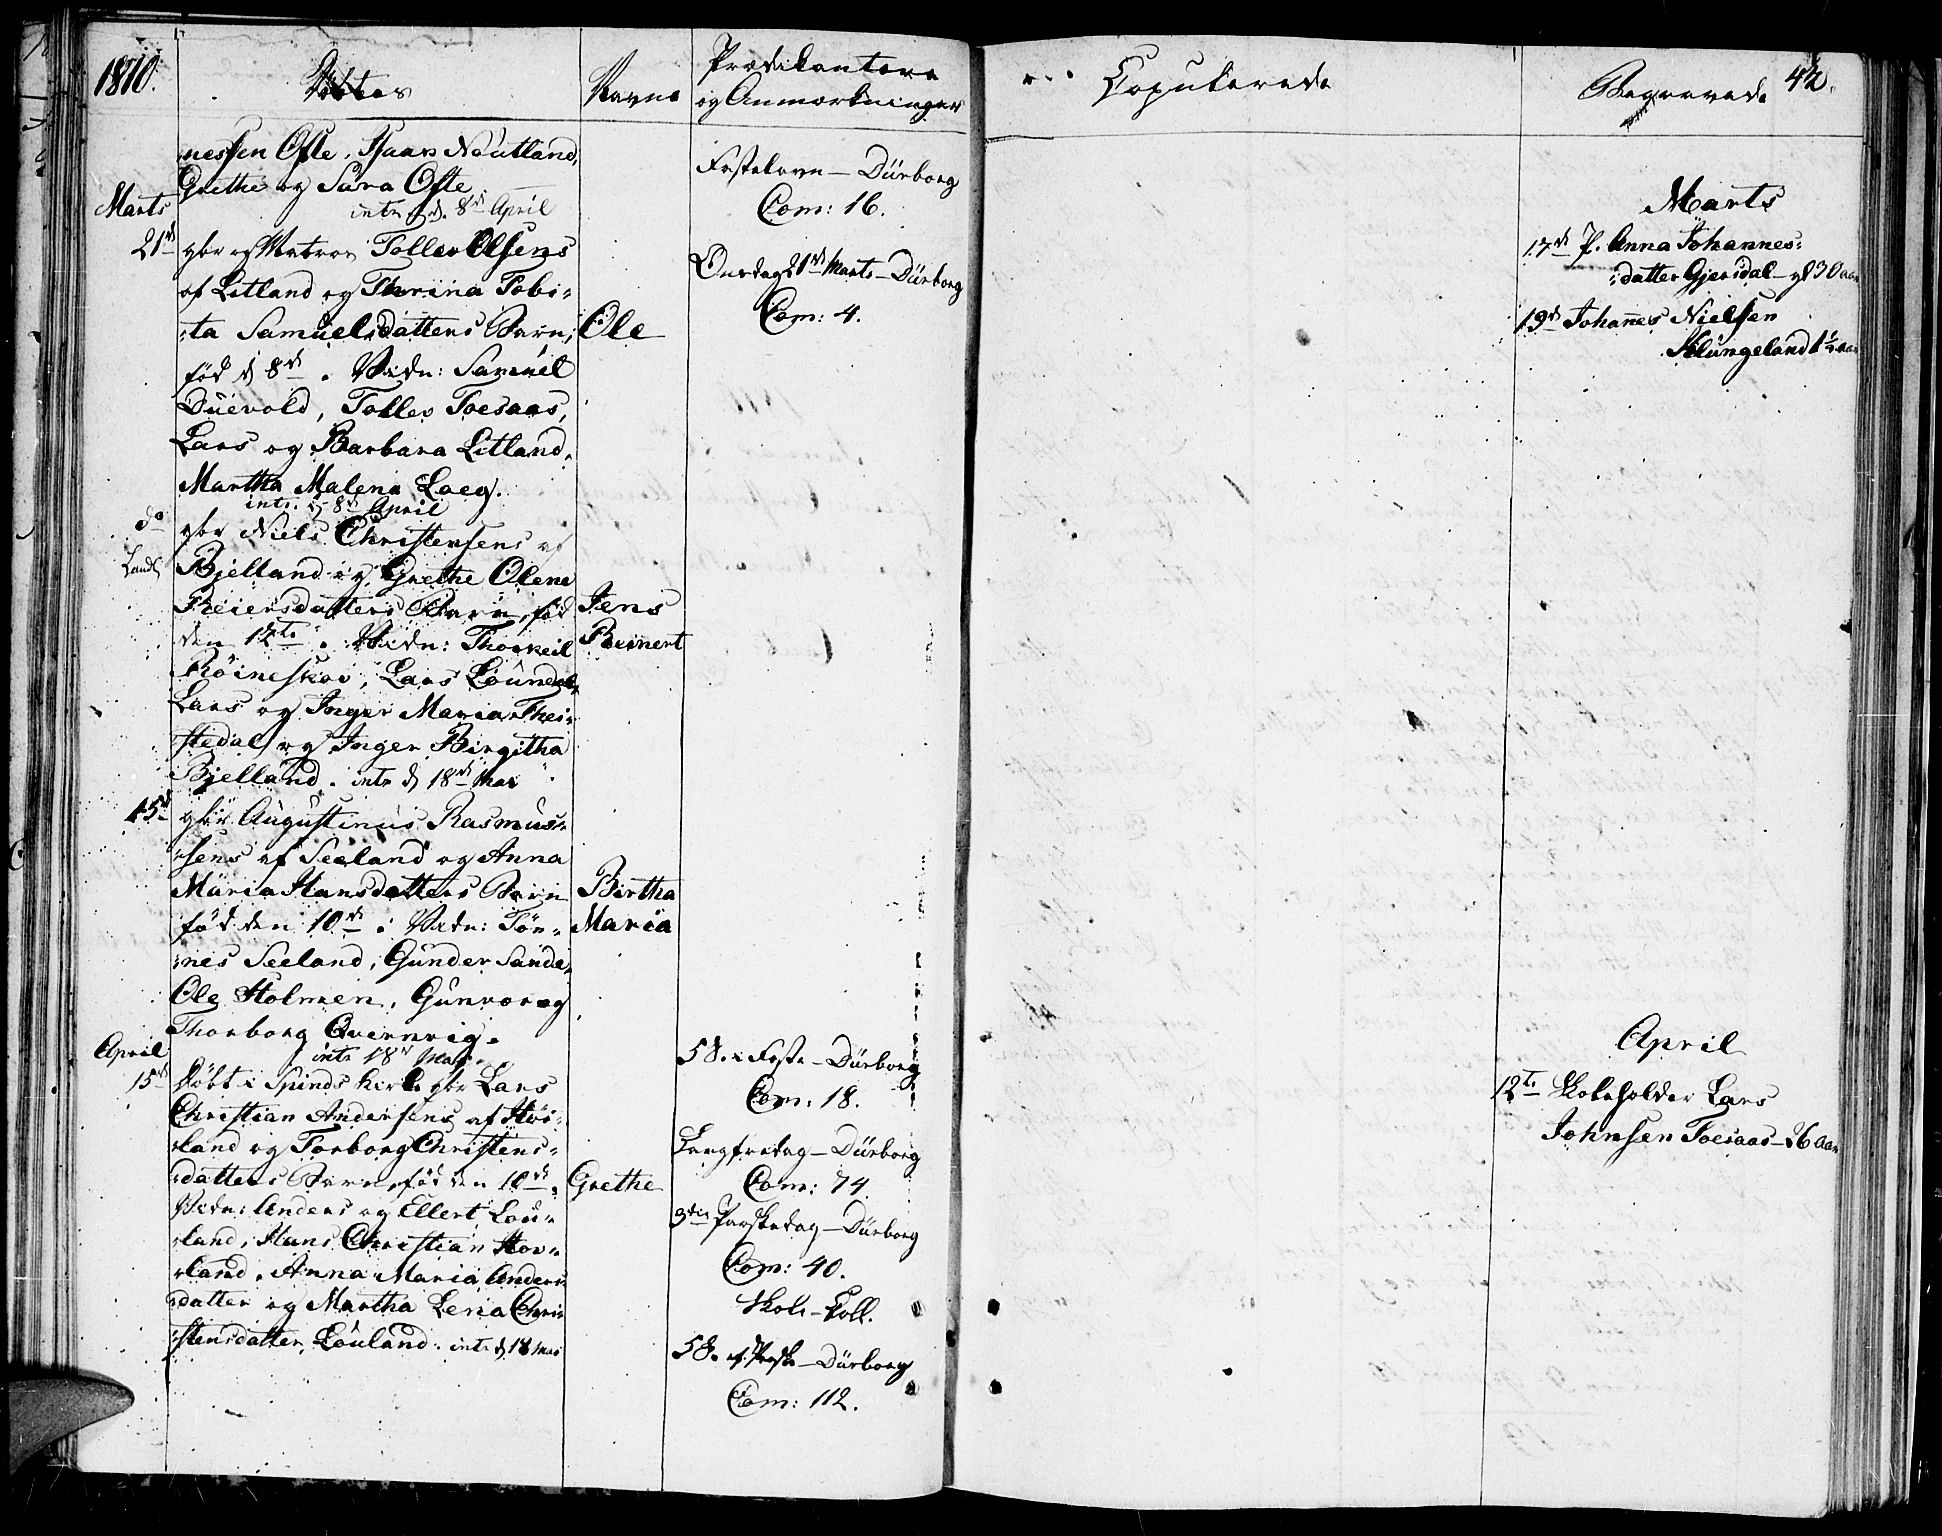 1810.
Döbte
Navne
Prædikantere
og Anmærkninger
nessen Ofte, Isaac Neutland,
Grethe og Sara Ofte.
Marts
intr. d. 8de April
21de gbr og Matros Tollev Olsens
af Litland og Thrina Tobi-
ta Samuelsdatters Barn,
Ole
föd d 8de. Vidn: Samuel
Duevold, Tollev Toesaas,
Lars og Barbara Litland,
Martha Malena Loeg.
intr. d 8de April
do gbr Niels Christensens af
Lands
Bjelland og Grethe Olene
Reiersdatters Barn, föd
Jens
den 12te. Vidn: Thorkeil
Reinert
Röineskov, Lars Loundal,
Lars og Inger Maria Thei-
stedal og Inger Birgitha
Bjelland. intr d 18de Mai
25de gbr Augustinus Rasmus-
sens af Seeland og Anna
Maria Hansdatters Barn
Birtha
föd den 10de. Vidn: Tön-
Maria
nes Seeland, Gunder Sande,
Ole Holmen, Gunvor og
Thorborg Qvernvig.
April
intr 18de Mai
15de döbt i Spinds Kirke gbr Lars
Christian Andersens af Höi-
land og Torborg Christens-
datters Barn, föd den 10de.
Grethe
Vidn: Anders og Ellert Lou-
land, Hans Christian Hov-
land, Anna Maria Anders-
datter og Martha Lena Chri-
stensdatter Louland. intr d 18 Mai
Fastelavn - Dürborg
Com: 16.
Onsdag 21de Marts - Dürborg
Com: 4.
5 S. i Faste - Dürborg
Com: 18.
Langfredag - Dürborg
Com: 74
Paaskedag - Dürborg
Com: 40.
Skole-Coll.
Dürborg
Com: 112.
Copulerede
Begravede
42.
Marts
17de P. Anna Johannes-
datter Gjersdal - 30 aar
19de Johannes Nielsen
Klungeland 1½ aar
April
12te Skoleholder Lars
Johnsen Toesaas - 26 aar